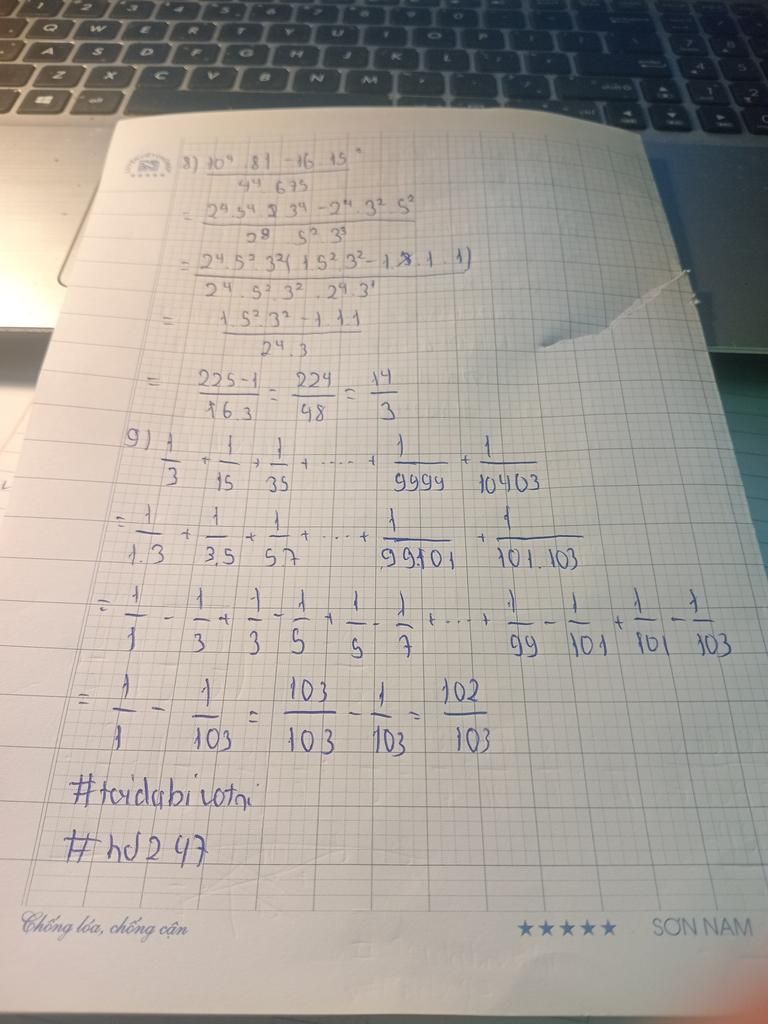 8) 10⁴ . 81 - 16 . 15² / 4⁴ . 675
= 2⁴.5⁴.3⁴ - 2⁴.3².5² / 2⁸ 5² 3³
= 2⁴.5².3²(1.5².3² - 1.1.1) / 2⁴.5².3².2⁴.3¹
= 1.5².3² - 1.1.1 / 2⁴.3
= 225-1 / 16.3 = 224 / 48 = 14 / 3
9) 1/3 + 1/15 + 1/35 + ..... + 1/9999 + 1/10403
= 1/1.3 + 1/3.5 + 1/5.7 + ... + 1/99.101 + 1/101.103
= 1/1 - 1/3 + 1/3 - 1/5 + 1/5 - 1/7 + ... + 1/99 - 1/101 + 1/101 - 1/103
= 1/1 - 1/103 = 103/103 - 1/103 = 102/103
#hd247
Chống lóa, chống cận ★★★★★ SƠN NAM